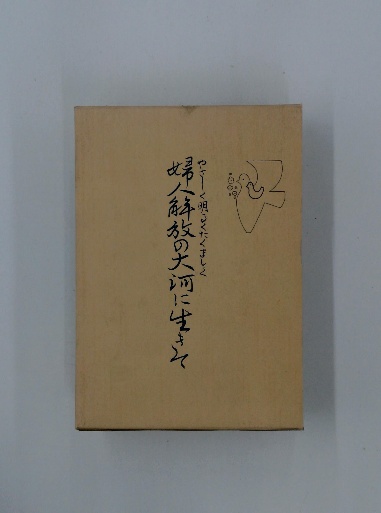 やさしく明るくたくましく
婦人解放の大河に生きて